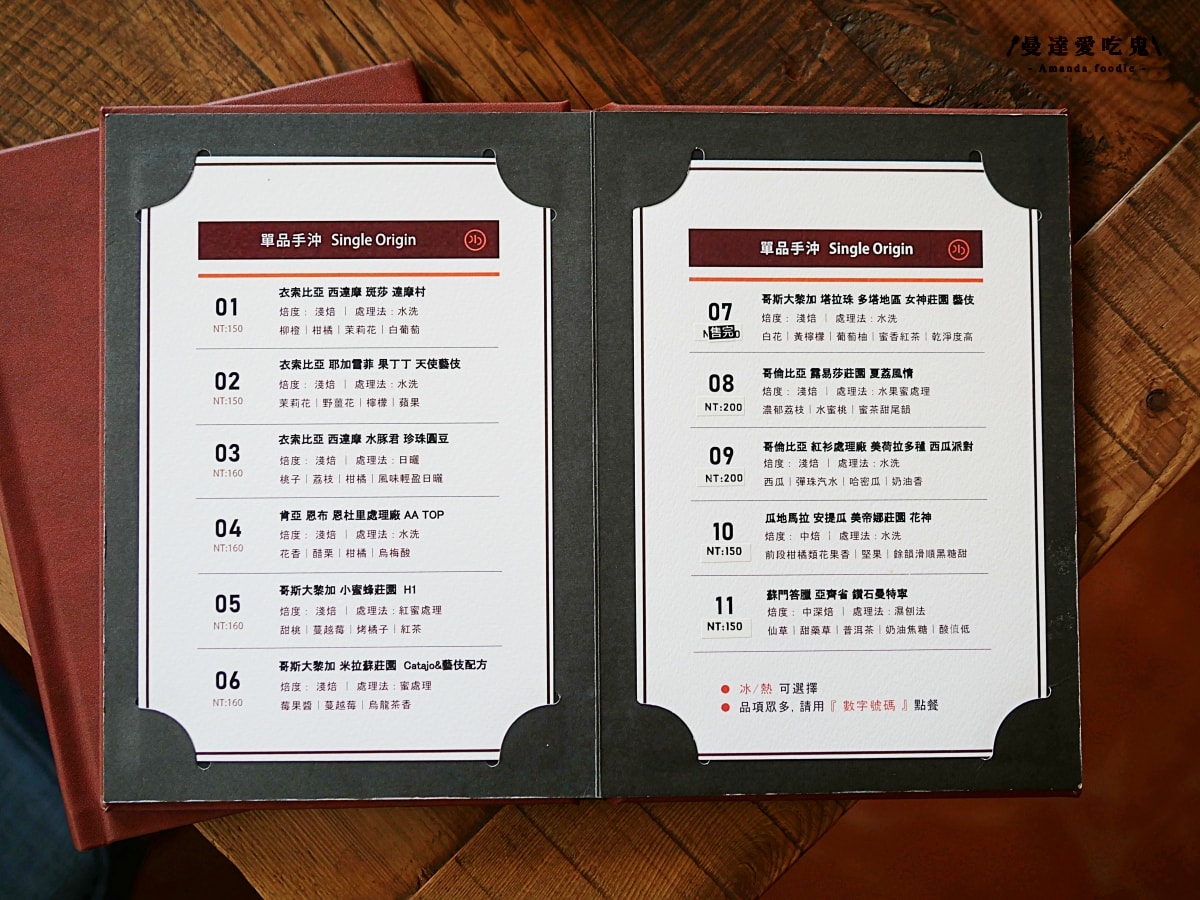 曼達愛吃鬼
- Amanda foodie -
單品手沖 Single Origin
01
NT:150
衣索比亞 西達摩 斑莎 達摩村
焙度： 淺焙 | 處理法：水洗
柳橙 | 柑橘 | 茉莉花 | 白葡萄
02
NT:150
衣索比亞 耶加雪菲 果丁丁 天使藝伎
焙度： 淺焙 | 處理法：水洗
茉莉花 | 野薑花 | 檸檬 | 蘋果
03
NT:160
衣索比亞 西達摩 水豚君 珍珠圓豆
焙度： 淺焙 | 處理法：日曬
桃子 | 荔枝 | 柑橘 | 風味輕盈日曬
04
NT:160
肯亞 恩布 恩杜里處理廠 AA TOP
焙度： 淺焙 | 處理法：水洗
花香 | 醋栗 | 柑橘 | 烏梅酸
05
NT:160
哥斯大黎加 小蜜蜂莊園 H1
焙度： 淺焙 | 處理法：紅蜜處理
甜桃 | 蔓越莓 | 烤橘子 | 紅茶
06
NT:160
哥斯大黎加 米拉蘇莊園 Catajo&藝伎配方
焙度： 淺焙 | 處理法：蜜處理
莓果醬 | 蔓越莓 | 烏龍茶香
單品手沖 Single Origin
07
售完
哥斯大黎加 塔拉珠 多塔地區 女神莊園 藝伎
焙度： 淺焙 | 處理法：水洗
白花 | 黃檸檬 | 葡萄柚 | 蜜香紅茶 | 乾淨度高
08
NT:200
哥倫比亞 露易莎莊園 夏荔風情
焙度： 淺焙 | 處理法：水果蜜處理
濃郁荔枝 | 水蜜桃 | 蜜茶甜尾韻
09
NT:200
哥倫比亞 紅衫處理廠 美荷拉多種 西瓜派對
焙度： 淺焙 | 處理法：水洗
西瓜 | 彈珠汽水 | 哈密瓜 | 奶油香
10
NT:150
瓜地馬拉 安提瓜 美帝娜莊園 花神
焙度： 中焙 | 處理法：水洗
前段柑橘類花果香 | 堅果 | 餘韻滑順黑糖甜
11
NT:150
蘇門答臘 亞齊省 鑽石曼特寧
焙度： 中深焙 | 處理法：濕刨法
仙草 | 甜藥草 | 普洱茶 | 奶油焦糖 | 酸值低
● 冰/熱 可選擇
● 品項眾多, 請用『 數字號碼 』點餐